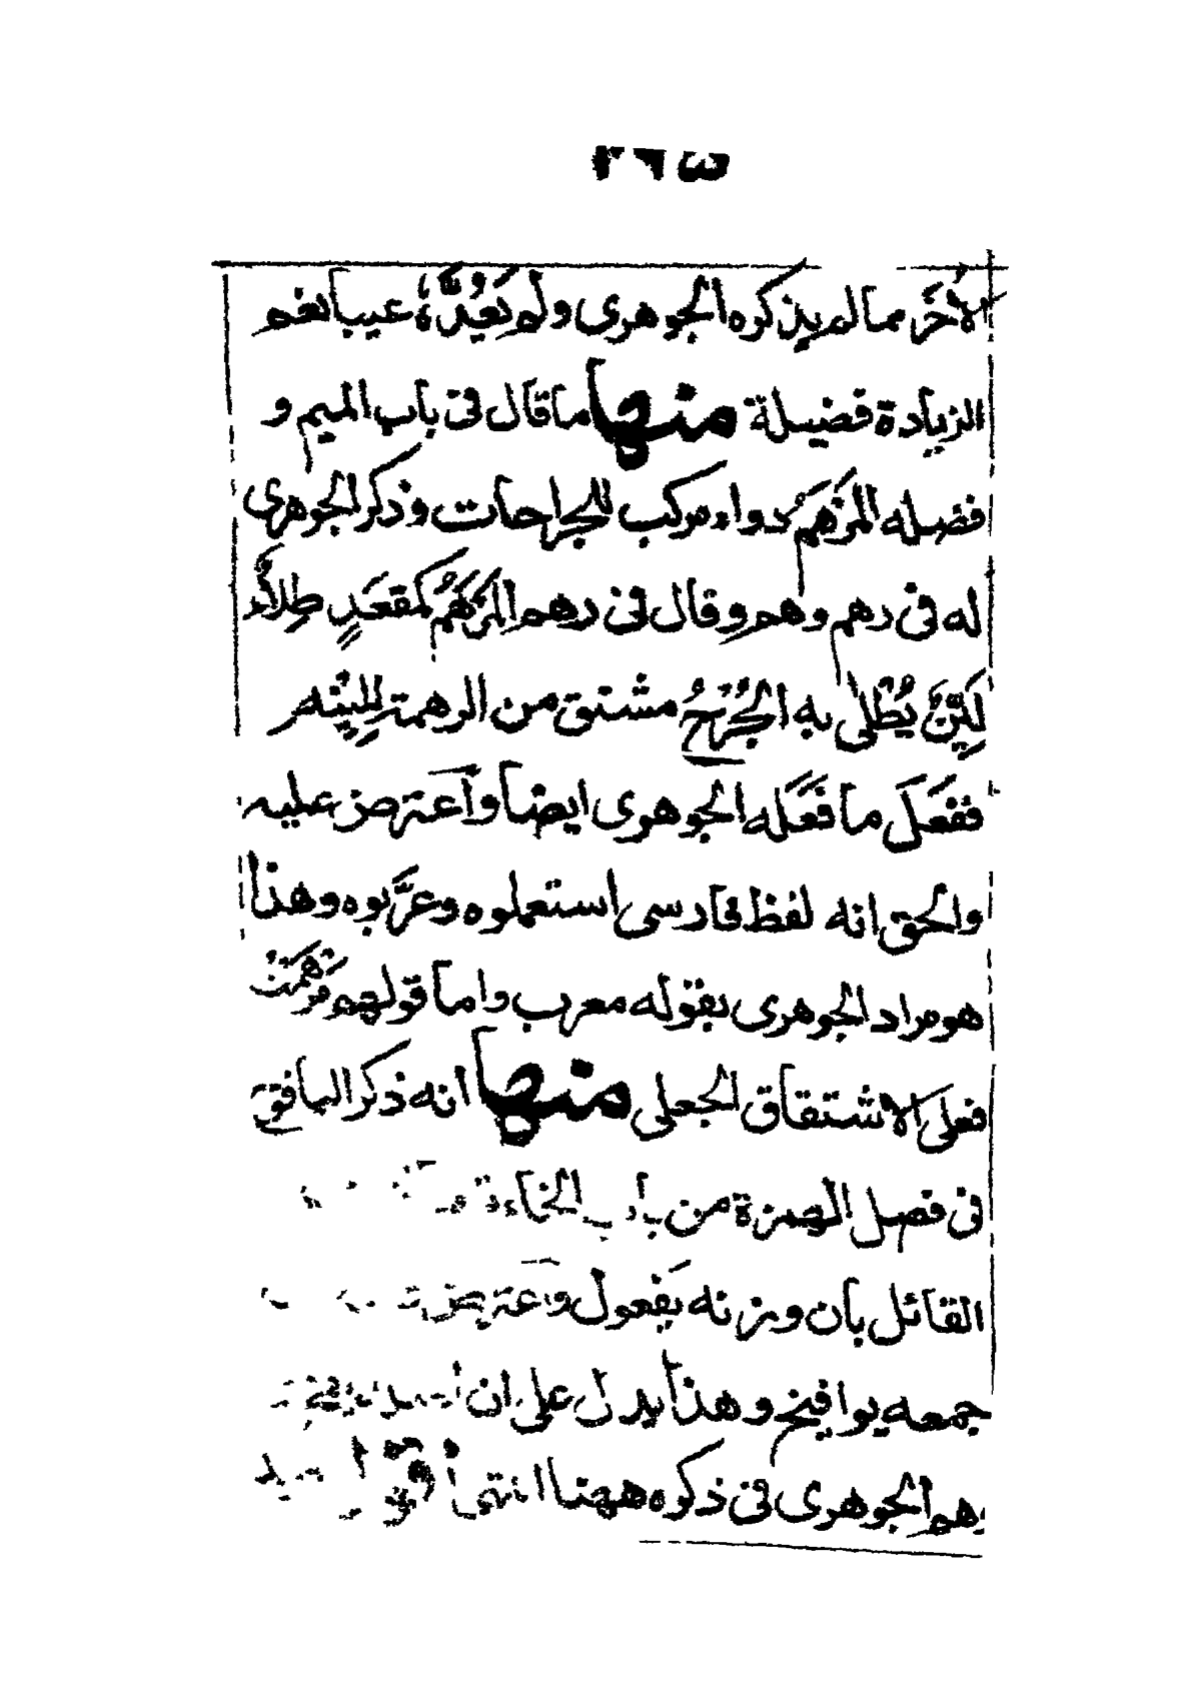 ٣٦٥
الأخَر مما لم يذكره الجوهرى ولم يَعُدَّهُ عيبا نعم
الزيادة فضيلة منها ما قال فى باب الميم و
فصله المَرْهَمُ دواء مركب للجراحات وذكر الجوهرى
له فى رهم وهم وقال فى رهم المَرْهَمُ كمقعَدٍ طِلاءٌ
لَيِّنٌ يُطْلى به الجُرْحُ مشتق من الرهمة لِلِينِه
ففعَلَ ما فَعَلَه الجوهرى ايضا وآعترض عليه
والحق انه لفظ فارسى استعملوه وعرَّبوه وهذا
هو مراد الجوهرى بقوله معرب واما قولهم مَرْهَمْت
فعلى الاشتقاق الجعلى منها أنه ذكر اليأفوخ
فى فصل الهمزة من باب الخاء
القائل بان وزنه يَفعول وآعترض
جمعه يوافيخ وهذا يدل على ان
وهم الجوهرى فى ذكره ههنا انتهى أقول